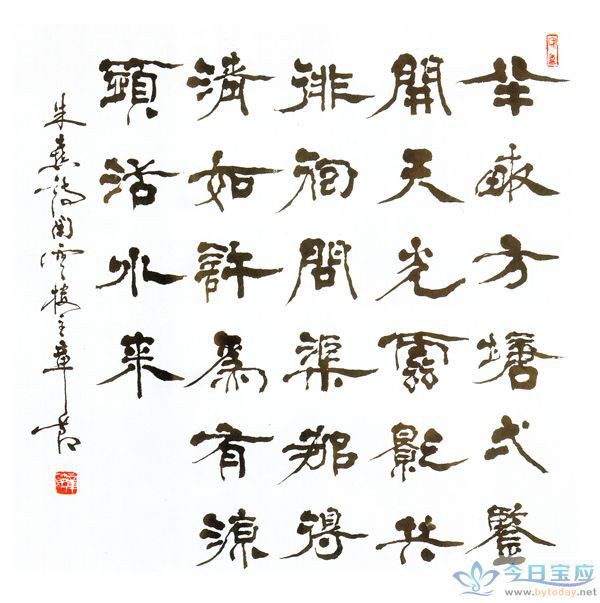 半畝方塘弌鑒
開天光雲影共
徘徊問渠那得
清如許為有源
頭活水來
朱熹詩雲樓主章
今日宝应
www.bytoday.net